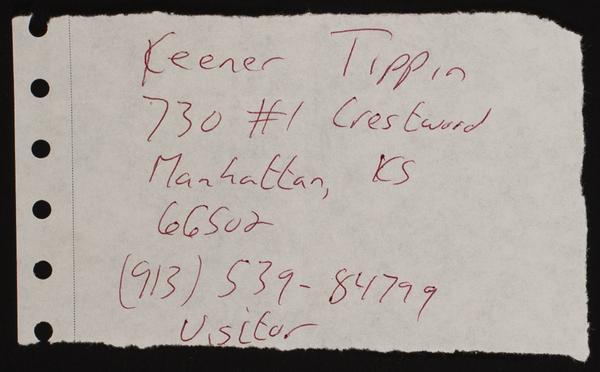 Keener Tippin
730 #1 Crestwood
Manhattan, KS
66502
(913) 539-84799
Visitor